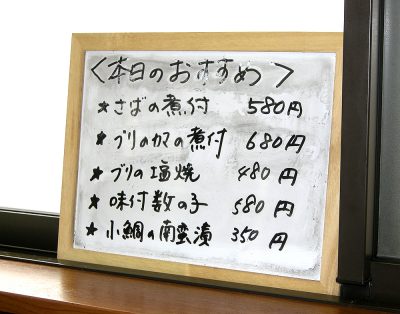 <本日のおすすめ>
★さばの煮付 580円
★ブリのカマの煮付 680円
★ブリの塩焼 480円
★味付数の子 580円
★小鯛の南蛮漬 350円